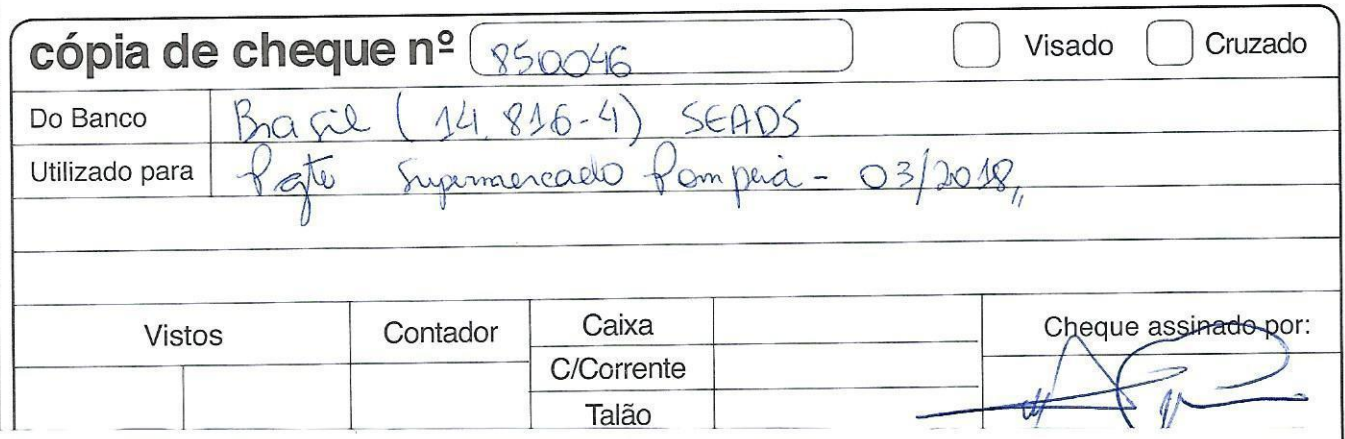 cópia de cheque nº 850046 Visado Cruzado
Do Banco Brasil (14.816-4) SEADS
Utilizado para Pgto Supermercado Pompeia - 03/2018,,
Vistos Contador Caixa Cheque assinado por:
C/Corrente
Talão